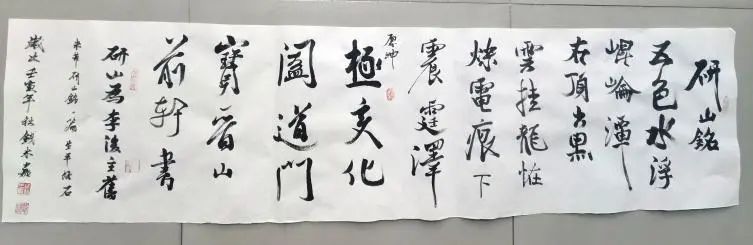 研山銘
五色水浮
崐崘潭
在頂出黑
雲挂龍恠
爍電痕下
震霆澤
厚坤
極变化
闔道門
寶晉山
前軒書
研山為李後主舊
米芾研山銘一
歲次壬寅年秋錢